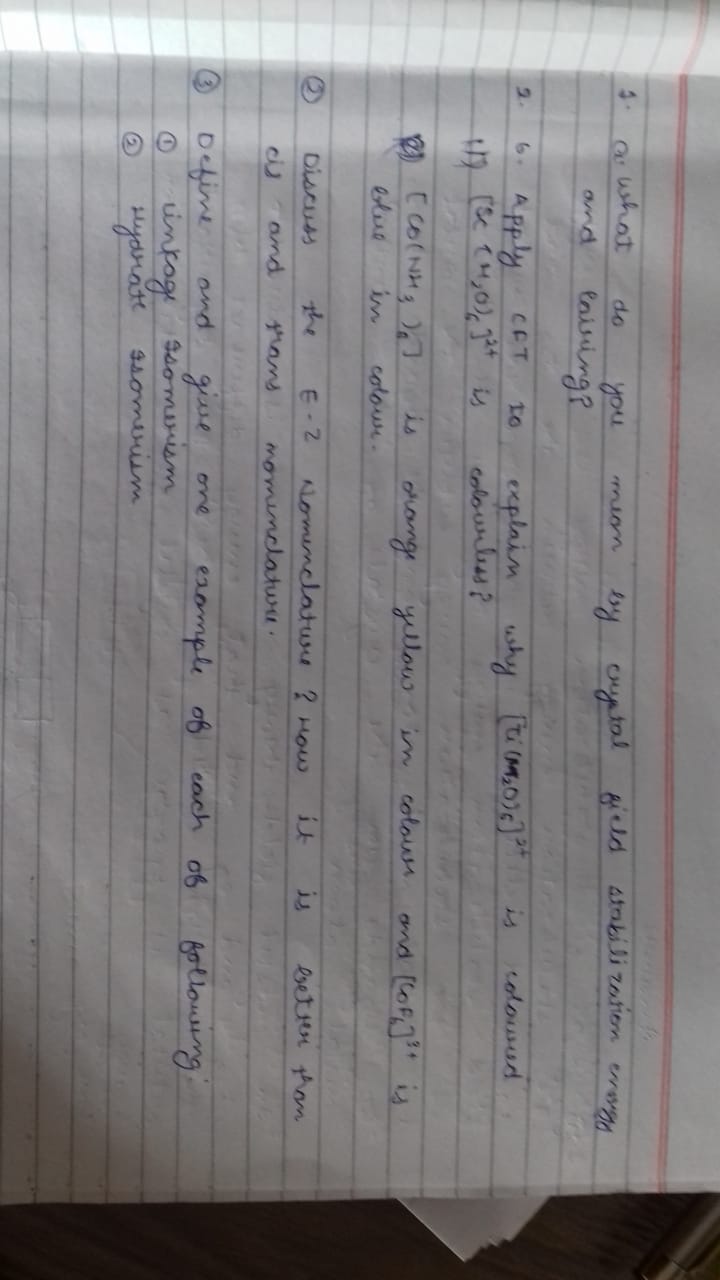 1. a. What do you mean by crystal field stabilization energy
and Pairing?
2. b. Apply CFT to explain why [Ti(H₂O)₆]³⁺ is coloured
(1) [Sc (H₂O)₆]²⁺ is colourless?
(2) [CO(NH₃)₆] is orange yellow in colour and [CoF₆]³⁺ is
blue in colour.
② Discuss the E-Z Nomenclature? How it is better than
cis and trans nomenclature.
③ Define and give one example of each of following:
① Linkage Isomerism
② Hydrate Isomerism